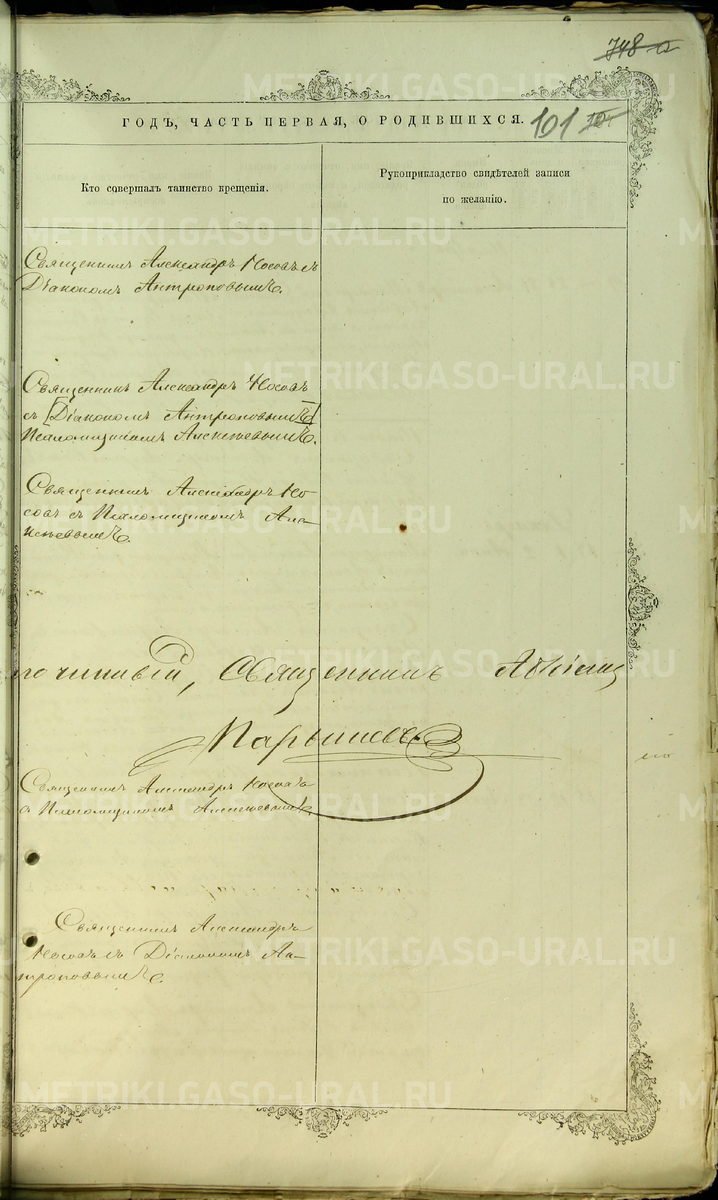 748
ГОДЪ, ЧАСТЬ ПЕРВАЯ, О РОДИВШИХСЯ.
101
Кто совершалъ таинство крещенія.
Рукоприкладство свидѣтелей записи
по желанію.
Священникъ Александръ Носовъ съ
Діакономъ Антроповымъ.
Священникъ Александръ Носовъ
съ [Діакономъ Антроповымъ]
Псаломщикомъ Алексѣевымъ.
Священникъ Александръ Но-
совъ съ Псаломщикомъ Але-
ксѣевымъ.
починный, Священникъ
Парышевъ
Священникъ Александръ Носовъ
съ Псаломщикомъ Алексѣевымъ.
Священникъ Александръ
Носовъ съ Діакономъ Ан-
троповымъ.
METRIKI.GASO-URAL.RU